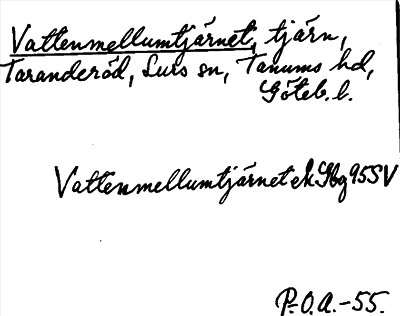 Vattenmellumtjärnet, tjärn,
Taranderöd, Lurs sn, Tanums hd,
Göteb. l.
Vattenmellumtjärnet ek. Gbg 95 SV
P.O.A. -55.